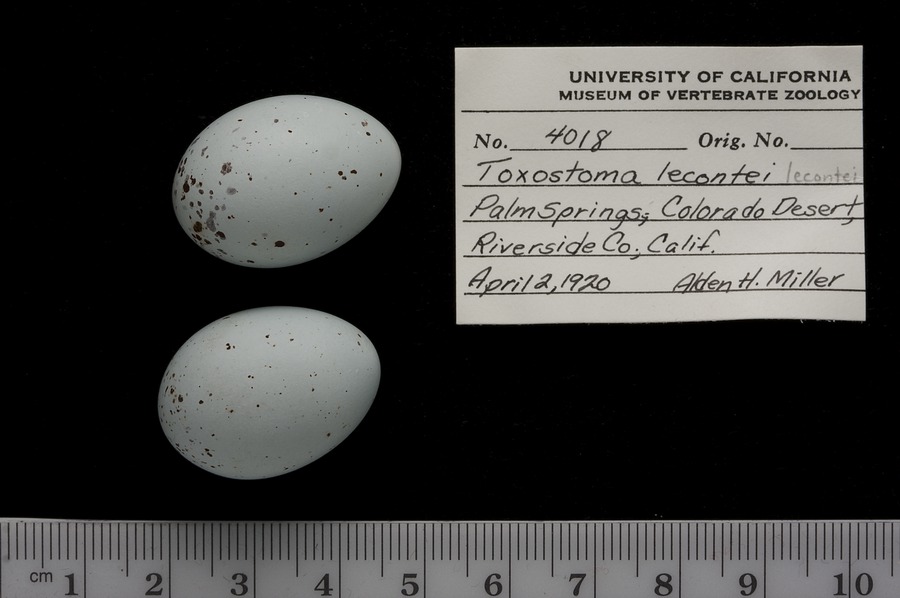 UNIVERSITY OF CALIFORNIA
MUSEUM OF VERTEBRATE ZOOLOGY
No. 4018 Orig. No.
Toxostoma lecontei lecontei
Palm Springs; Colorado Desert,
Riverside Co; Calif.
April 2, 1920 Alden H. Miller
cm 1 2 3 4 5 6 7 8 9 10